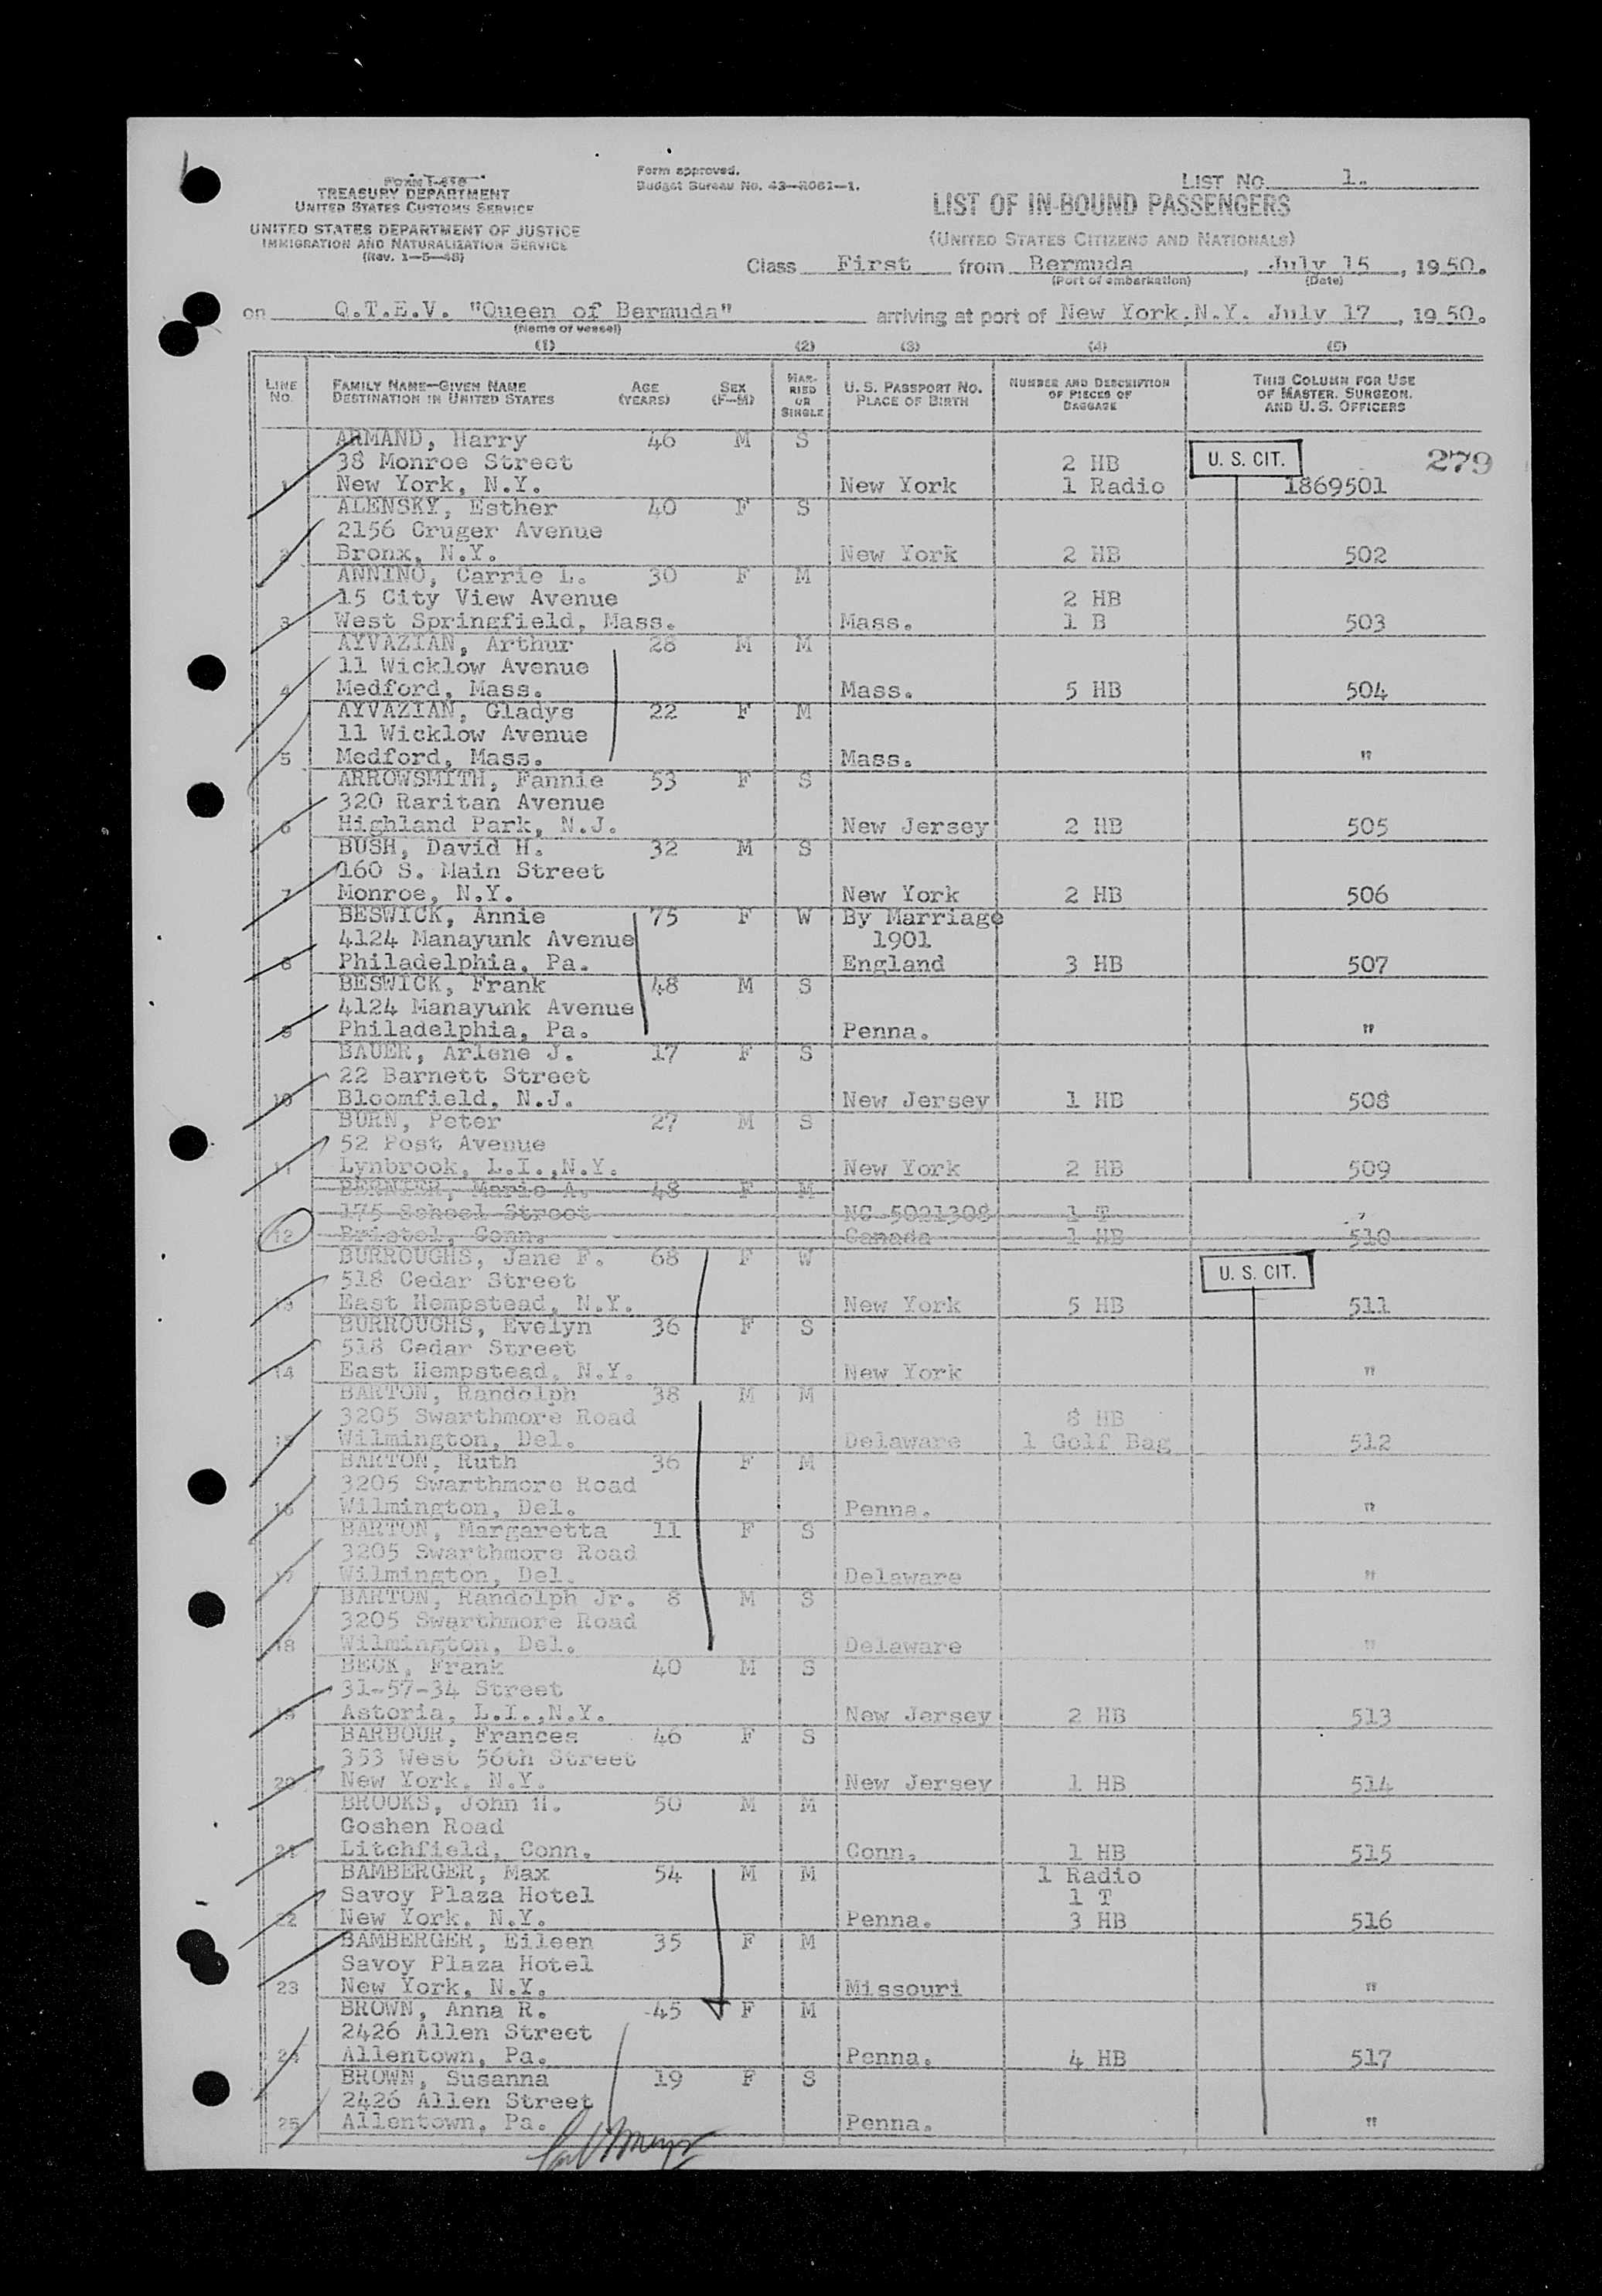 FORM I-418
TREASURY DEPARTMENT
UNITED STATES CUSTOMS SERVICE
UNITED STATES DEPARTMENT OF JUSTICE
IMMIGRATION AND NATURALIZATION SERVICE
(Rev. 1—5—48)
Form approved.
Budget Bureau No. 43—R081—1.
LIST No. 1.
LIST OF IN-BOUND PASSENGERS
(UNITED STATES CITIZENS AND NATIONALS)
Class First from Bermuda, July 15, 1950.
(Port of embarkation) (Date)
on Q.T.E.V. "Queen of Bermuda" arriving at port of New York,N.Y. July 17, 1950.
(Name of vessel)
(1) (2) (3) (4) (5)
LINE No. FAMILY NAME—GIVEN NAME DESTINATION IN UNITED STATES AGE (YEARS) SEX (F—M) MARRIED OR SINGLE U. S. PASSPORT NO. PLACE OF BIRTH NUMBER AND DESCRIPTION OF PIECES OF BAGGAGE THIS COLUMN FOR USE OF MASTER, SURGEON, AND U. S. OFFICERS
ARMAND, Harry 46 M S
38 Monroe Street 2 HB U. S. CIT. 279
1 New York, N.Y. New York 1 Radio 1869501
ALENSKY, Esther 40 F S
2156 Cruger Avenue
2 Bronx, N.Y. New York 2 HB 502
ANNINO, Carrie L. 30 F M
15 City View Avenue 2 HB
3 West Springfield, Mass. Mass. 1 B 503
AYVAZIAN, Arthur 28 M M
11 Wicklow Avenue
4 Medford, Mass. Mass. 5 HB 504
AYVAZIAN, Gladys 22 F M
11 Wicklow Avenue
5 Medford, Mass. Mass. "
ARROWSMITH, Fannie 53 F S
320 Raritan Avenue
6 Highland Park, N.J. New Jersey 2 HB 505
BUSH, David H. 32 M S
160 S. Main Street
7 Monroe, N.Y. New York 2 HB 506
BESWICK, Annie 75 F W By Marriage
4124 Manayunk Avenue 1901
8 Philadelphia, Pa. England 3 HB 507
BESWICK, Frank 48 M S
4124 Manayunk Avenue
9 Philadelphia, Pa. Penna. "
BAUER, Arlene J. 17 F S
22 Barnett Street
10 Bloomfield, N.J. New Jersey 1 HB 508
BURN, Peter 27 M S
52 Post Avenue
11 Lynbrook, L.I.,N.Y. New York 2 HB 509
BERNIER, Marie A. 48 F M
175 School Street NC 5021308 1 T
12 Bristol, Conn. Canada 1 HB 510
BURROUGHS, Jane F. 68 F W
518 Cedar Street U. S. CIT.
13 East Hempstead, N.Y. New York 5 HB 511
BURROUGHS, Evelyn 36 F S
518 Cedar Street
14 East Hempstead, N.Y. New York "
BARTON, Randolph 38 M M
3205 Swarthmore Road 8 HB
15 Wilmington, Del. Delaware 1 Golf Bag 512
BARTON, Ruth 36 F M
3205 Swarthmore Road
16 Wilmington, Del. Penna. "
BARTON, Margaretta 11 F S
3205 Swarthmore Road
17 Wilmington, Del. Delaware "
BARTON, Randolph Jr. 8 M S
3205 Swarthmore Road
18 Wilmington, Del. Delaware "
BECK, Frank 40 M S
31-57-34 Street
19 Astoria, L.I.,N.Y. New Jersey 2 HB 513
BARBOUR, Frances 46 F S
353 West 56th Street
20 New York, N.Y. New Jersey 1 HB 514
BROOKS, John H. 50 M M
Goshen Road
21 Litchfield, Conn. Conn. 1 HB 515
BAMBERGER, Max 54 M M 1 Radio
Savoy Plaza Hotel 1 T
22 New York, N.Y. Penna. 3 HB 516
BAMBERGER, Eileen 35 F M
Savoy Plaza Hotel
23 New York, N.Y. Missouri "
BROWN, Anna R. 45 F M
2426 Allen Street
24 Allentown, Pa. Penna. 4 HB 517
BROWN, Susanna 19 F S
2426 Allen Street
25 Allentown, Pa. Penna. "